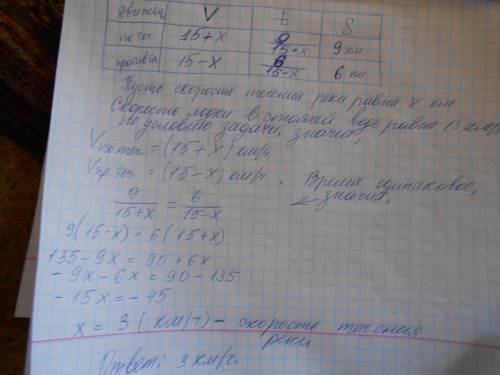 движен V t S
по теч. 15+x 9/15+x 9 км
против т. 15-x 6/15-x 6 км
Пусть скорость течения реки равна x км
Скорость лодки в стоячей воде равна 15 км/ч
по условию задачи, значит,
Vпо теч. = (15+x) км/ч.
Vпр. теч. = (15-x) км/ч. Время одинаковое,
значит,
9/15+x = 6/15-x
9(15-x) = 6(15+x)
135-9x = 90+6x
-9x-6x = 90-135
-15x = -45
x = 3 (км/ч) - скорость течения
реки
Ответ: 3 км/ч.